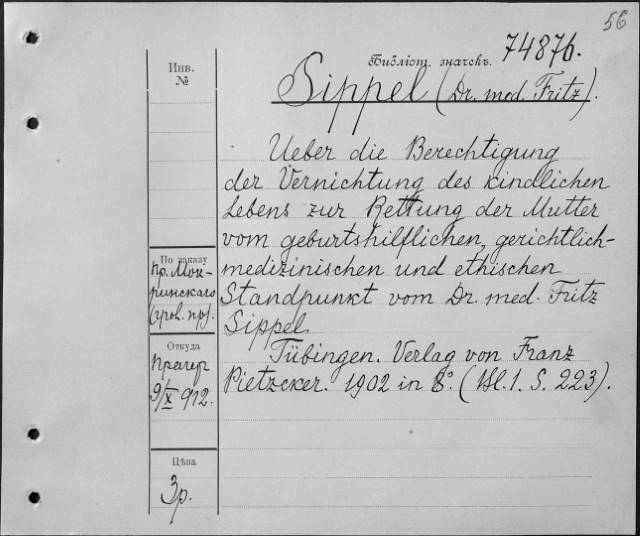 56
Библіот. значекъ. 74876.
Sippel (Dr. med. Fritz).
Инв.
№
Ueber die Berechtigung
der Vernichtung des kindlichen
Lebens zur Rettung der Mutter
vom geburtshilflichen, gerichtlich-
medizinischen und ethischen
Standpunkt vom Dr. med. Fritz
Sippel.
Tübingen. Verlag von Franz
Pietzcker. 1902 in 8°. (Bl. 1. S. 223).
По заказу
пр. Мок-
ринскаго
(угов. пр).
Откуда
Прагер
9/X 912.
Цѣна
3р.